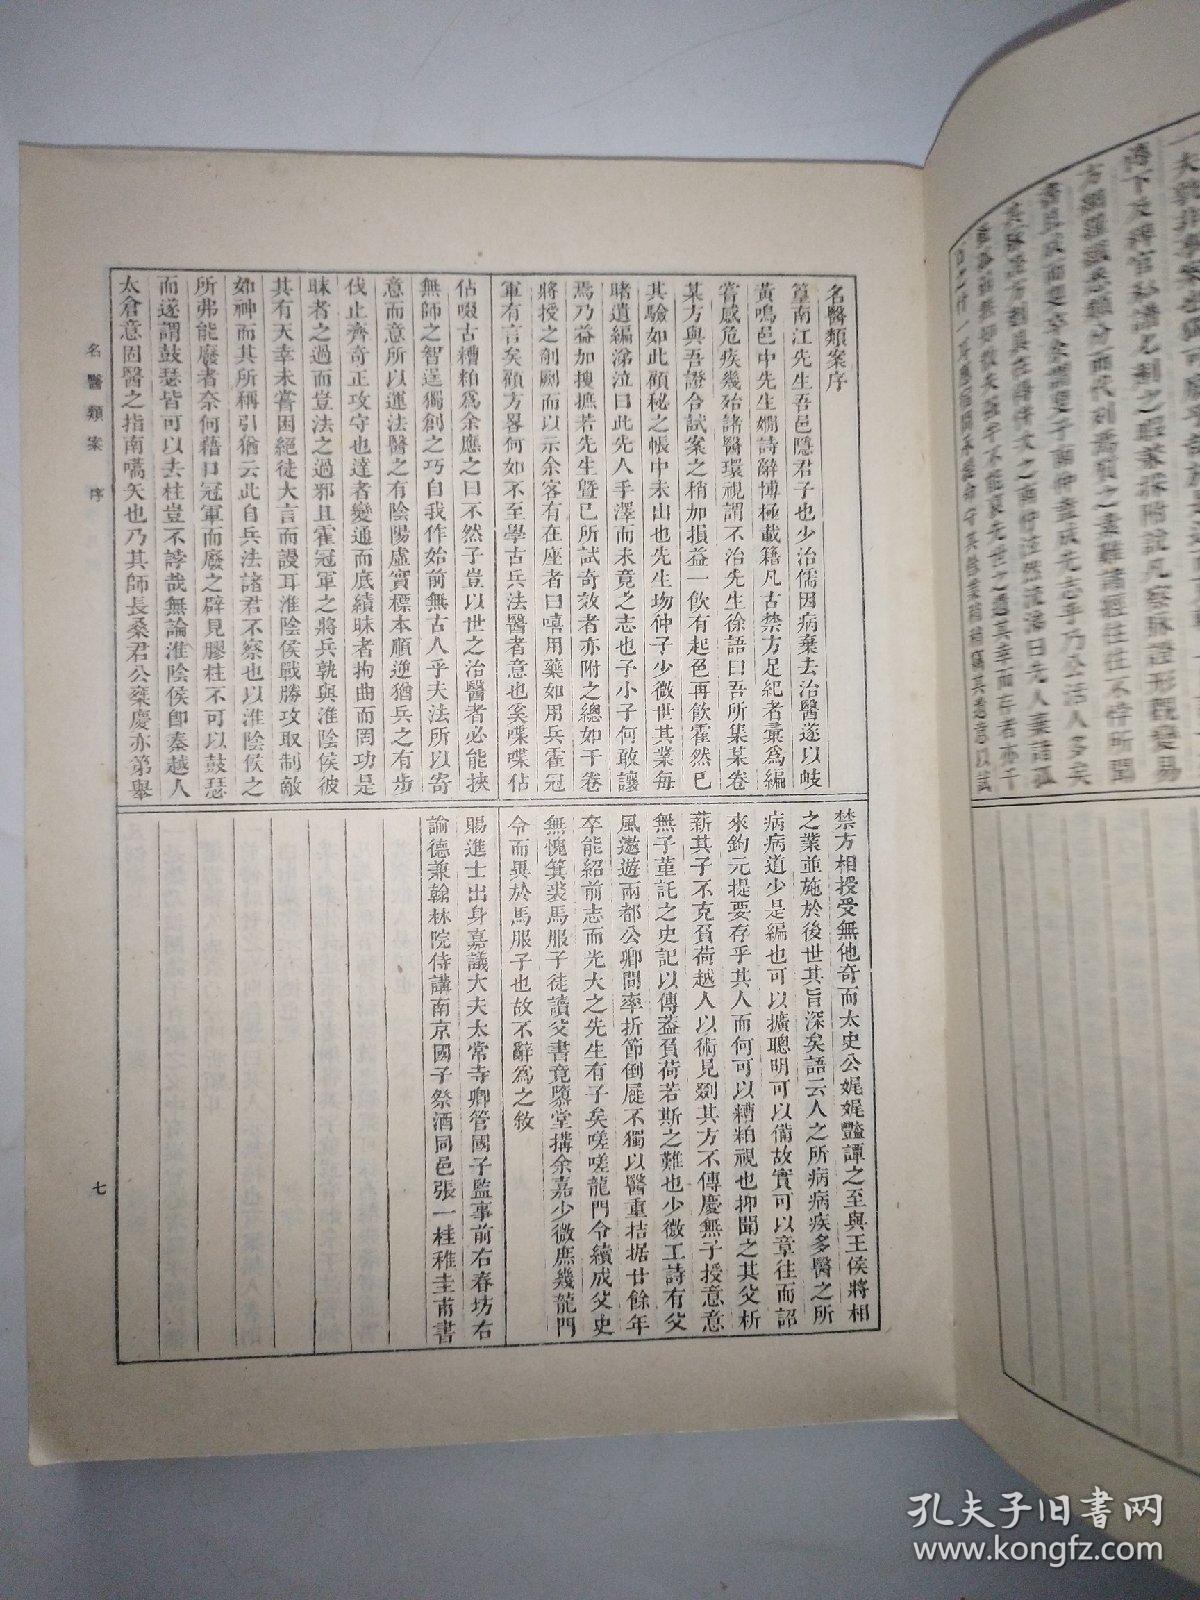 名醫類案序
篁南江先生吾邑隱君子也少治儒因病棄去治醫遂以岐
黃鳴邑中先生嫺詩辭博極載籍凡古禁方足紀者彙爲編
嘗感危疾幾殆諸醫環視謂不治先生徐語曰吾所集某卷
某方與吾證合試案之稍加損益一飲有起色再飲霍然已
其驗如此顧秘之帳中未出也先生歿仲子少微世其業每
睹遺編涕泣曰此先人手澤而未竟之志也子小子何敢讓
焉乃益加搜摭若先生曁已所試奇效者亦附之總如干卷
將授之剞劂而以示余客有在座者曰嘻用藥如用兵霍冠
軍有言矣顧方畧何如不至學古兵法醫者意也奚喋喋佔
佔啜古糟粕爲余應之曰不然子豈以世之治醫者必能挾
無師之智逞獨創之巧自我作始前無古人乎夫法所以寄
意而意所以運法醫之有陰陽虛實標本順逆猶兵之有步
伐止齊奇正攻守也達者變通而底績昧者拘曲而罔功是
昧者之過而豈法之過邪且霍冠軍之將兵孰與淮陰侯彼
其有天幸未嘗困絕徒大言而謾耳淮陰侯戰勝攻取制敵
如神而其所稱引猶云此自兵法諸君不察也以淮陰侯之
所弗能廢者奈何藉口冠軍而廢之辟見膠柱不可以鼓瑟
而遂謂鼓瑟皆可以去柱豈不誖哉無論淮陰侯卽秦越人
太倉意固醫之指南嚆矢也乃其師長桑君公椉慶亦第舉
禁方相授受無他奇而太史公娓娓豔譚之至與王侯將相
之業並施於後世其旨深矣語云人之所病病疾多醫之所
病病道少是編也可以擴聰明可以備故實可以章往而詔
來鈎元提要存乎其人而何可以糟粕視也抑聞之其父析
薪其子不克負荷越人以術見劉其方不傳慶無子授意意
無子菫託之史記以傳葢負荷若斯之難也少微工詩有父
風遨遊兩都公卿間率折節倒屣不獨以醫重拮据廿餘年
卒能紹前志而光大之先生有子矣嗟嗟龍門令續成父史
無愧箕裘馬服子徒讀父書竟隳堂搆余嘉少微庶幾龍門
令而異於馬服子也故不辭爲之敘
賜進士出身嘉議大夫太常寺卿管國子監事前右春坊右
諭德兼翰林院侍講南京國子祭酒同邑張一桂稚圭甫書
名醫類案 序
七
孔夫子旧书网
www.kongfz.com